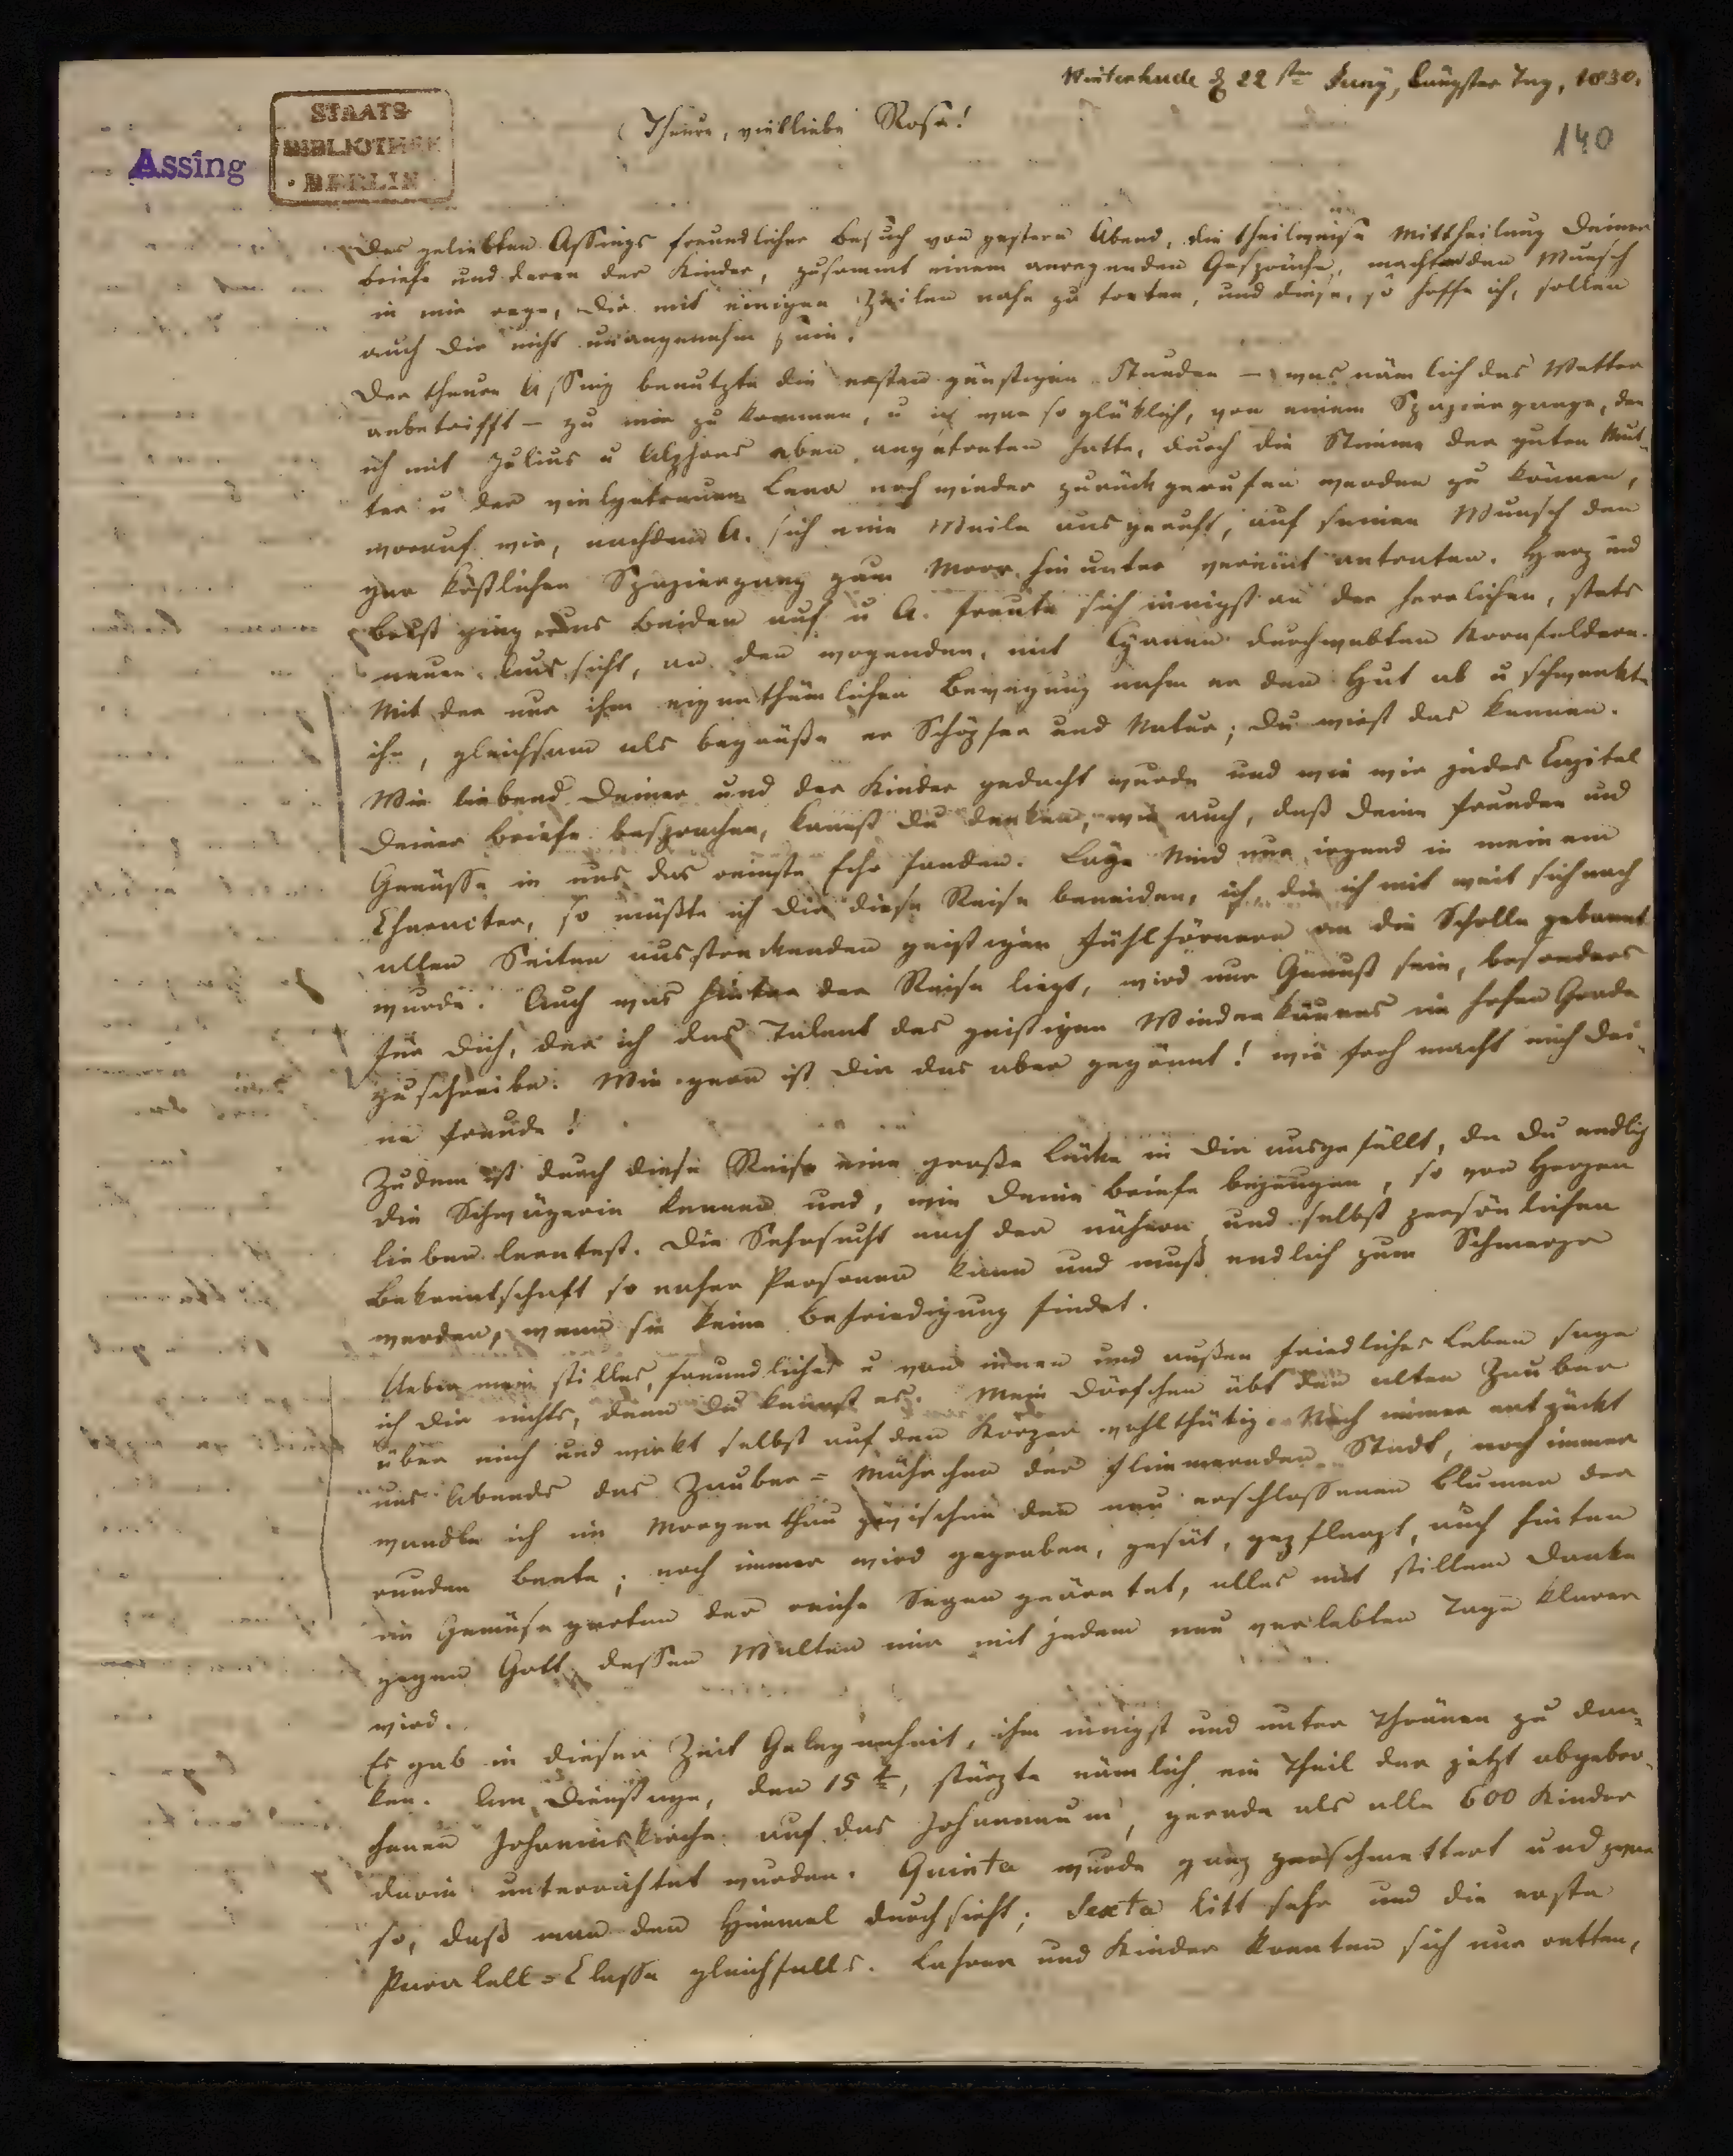 Winterhude d 22 sten Juny, längster Tag, 1830.
Theure, vielliebe Rosa!
140
STAATS-
BIBLIOTHEK
· BERLIN ·
Assing
Des geliebten Assings freundlicher Besuch von gestern Abend, die theilweise Mittheilung Deiner
Briefe und derer der Kinder, zusammt einem anregenden Gespräche, machten den Wunsch
in mir rege, Dir mit einigen Zeilen nahe zu treten, und diese, so hoffe ich, sollen
auch Dir nicht unangenehm sein.
Der theure Assing benutzte die ersten günstigen Stunden – was nämlich das Wetter
anbetrifft – zu mir zu kommen, u ich war so glücklich, von einem Spaziergange, den
ich mit Julius u Alphons eben angetreten hatte, durch die Stimme der guten Mut-
ter u der vielgetreuen Lena noch wieder zurück gerufen werden zu können,
worauf wir, nachdem A. sich eine Weile ausgeruht, auf seinen Wunsch den
gar köstlichen Spaziergang zum Moor hinunter vereint antraten. Herz und
Brust ging uns Beiden auf u A. freute sich innigst an der herrlichen, stets
neuen Aussicht, an den wogenden, mit Cyanen durchwebten Kornfeldern.
Mit der nur ihm eigenthümlichen Bewegung nahm er den Hut ab u schwenkte
ihn, gleichsam als begrüße er Schöpfer und Natur; Du wirst das kennen.
Wie liebend Deiner und der Kinder gedacht wurde und wie wir jedes Capitel
Deiner Briefe besprachen, kannst Du denken, wie auch, daß Deine Freuden und
Genüsse in uns das reinste Echo fanden. Läge Neid nur irgend in meinem
Character, so müßte ich Dir diese Reise beneiden, ich, die ich mit weit sich nach
allen Seiten ausstreckenden geistigen Fühlhörnern an die Scholle gebannt
wurde. Auch was hinter der Reise liegt, wird nur Genuß sein, besonders
für Dich, der ich das Talent des geistigen Wiederkäuens in hohem Grade
zuschreibe. Wie gern ist Dir das aber gegönnt! wie froh macht mich Dei-
ne Freude!
Zudem ist durch diese Reise eine große Lücke in Dir ausgefüllt, da Du endlich
die Schwägerin kennen und, wie Deine Briefe bezeugen, so von Herzen
lieben lerntest. Die Sehnsucht nach der nähern und selbst persönlichen
Bekanntschaft so naher Personen kann und muß endlich zum Schmerze
werden, wenn sie keine Befriedigung findet.
Ueber mein stilles, freundliches u von innen und außen friedliches Leben sage
ich Dir nichts, denn Du kennst es. Mein Dörfchen übt den alten Zauber
über mich und wirkt selbst auf den Körper wohlthätig. Noch immer entzückt
uns Abends das Zauber-Mährchen der flimmernden Stadt, noch immer
wandle ich im Morgenthau zwischen den neu erschlossenen Blumen der
runden Beete; noch immer wird gegraben, gesät, gepflanzt, auch hinten
im Gemüsegarten der reiche Segen geärntet, alles mit stillem Danke
gegen Gott, dessen Walten mir mit jedem neu verlebten Tage klarer
wird.
Es gab in dieser Zeit Gelegenheit, ihm innigst und unter Thränen zu dan-
ken. Am Dienstage, den 15 t, stürzte nämlich ein Theil der jetzt abgebro-
chenen Johanniskirche auf das Johanneum, gerade als alle 600 Kinder
darin unterrichtet wurden. Quinta wurde ganz zerschmettert und zwar
so, daß man den Himmel durchsieht; Sexta litt sehr und die erste
Parallel-Classe gleichfalls. Lehrer und Kinder konnten sich nur retten,